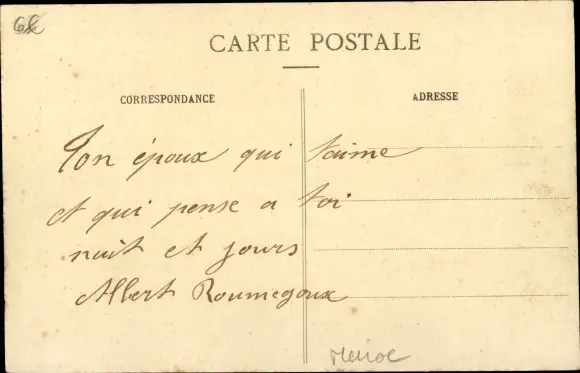 CARTE POSTALE
CORRESPONDANCE
ADRESSE
Ton époux qui t'aime
et qui pense a toi
nuit et jours
Albert Roumegoux